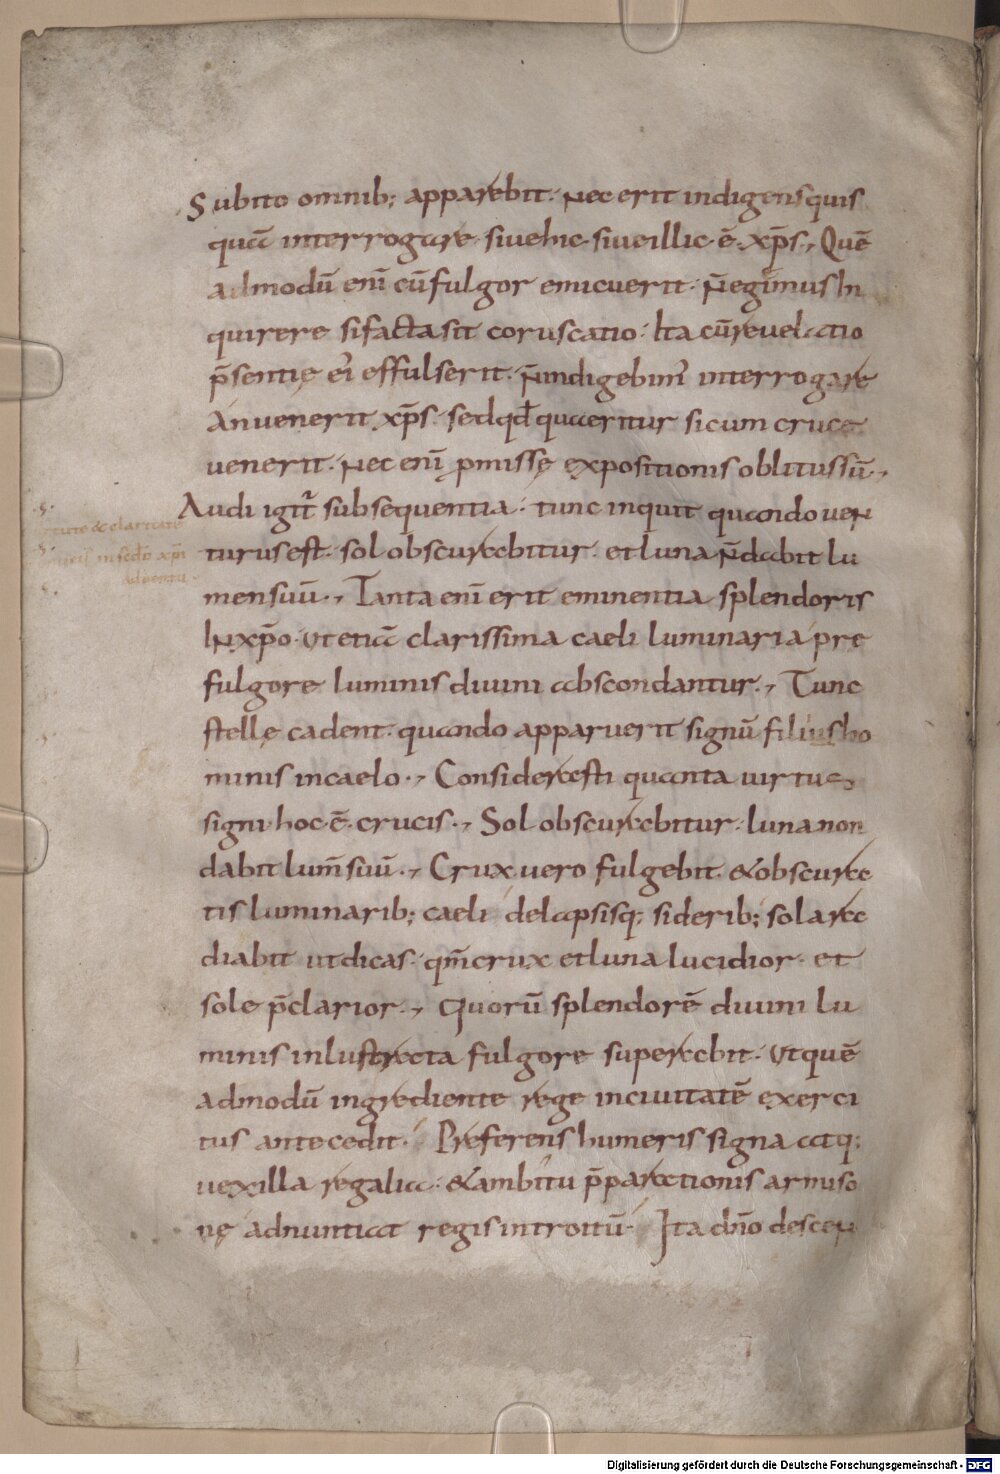 Subito omnib; apparebit. Nec erit indigens quis
quā interrogare. siue hic. siue illic. ē. xp̄s., Quē
admodū enī cū fulgor emicuerit. n̄ egimus In
quirere si facta sit coruscatio. Ita cū reuelatio
p̄sentię ei' effulserit. n̄ indigebim' interrogare
An uenerit xp̄s. sed qđ quaeritur si cum cruce
uenerit. Nec enī p̱missę expositionis oblitus sū.,
Audi igit̄ subsequentia. tunc inquit quando uen
turus est. sol obscurabitur. et luna n̄ dabit lu
men suū., Tanta enī erit eminentia splendoris
In xp̄o. ut etiā clarissima caeli luminaria pre
fulgore luminis diuini abscondantur., Tunc
stellę cadent. quando apparuerit signū filius ho
minis in caelo., Considerasti quanta uirtus
signi hoc ē. crucis., Sol obscurabitur. luna non
dabit lum̄ suū., Crux uero fulgebit. & obscura
tis luminarib; caeli delapsisq; siderib; sola ra
diabit ut dicas. qm̄ crux et luna lucidior. et
sole p̄clarior., Quorū splendorē diuini lu
minis inlustrata fulgore superabit. Ut quē
admodū ingrediente rege in ciuitatē exerci
tus antecedit. Preferens humeris signa atq;
uexilla regalia. & ambitu p̄parationis armiso
nę adnuntiat regis introitū. Ita dn̄o descen
&claritate
in sedo xp̄i
aduentu
Digitalisierung gefördert durch die Deutsche Forschungsgemeinschaft - DFG